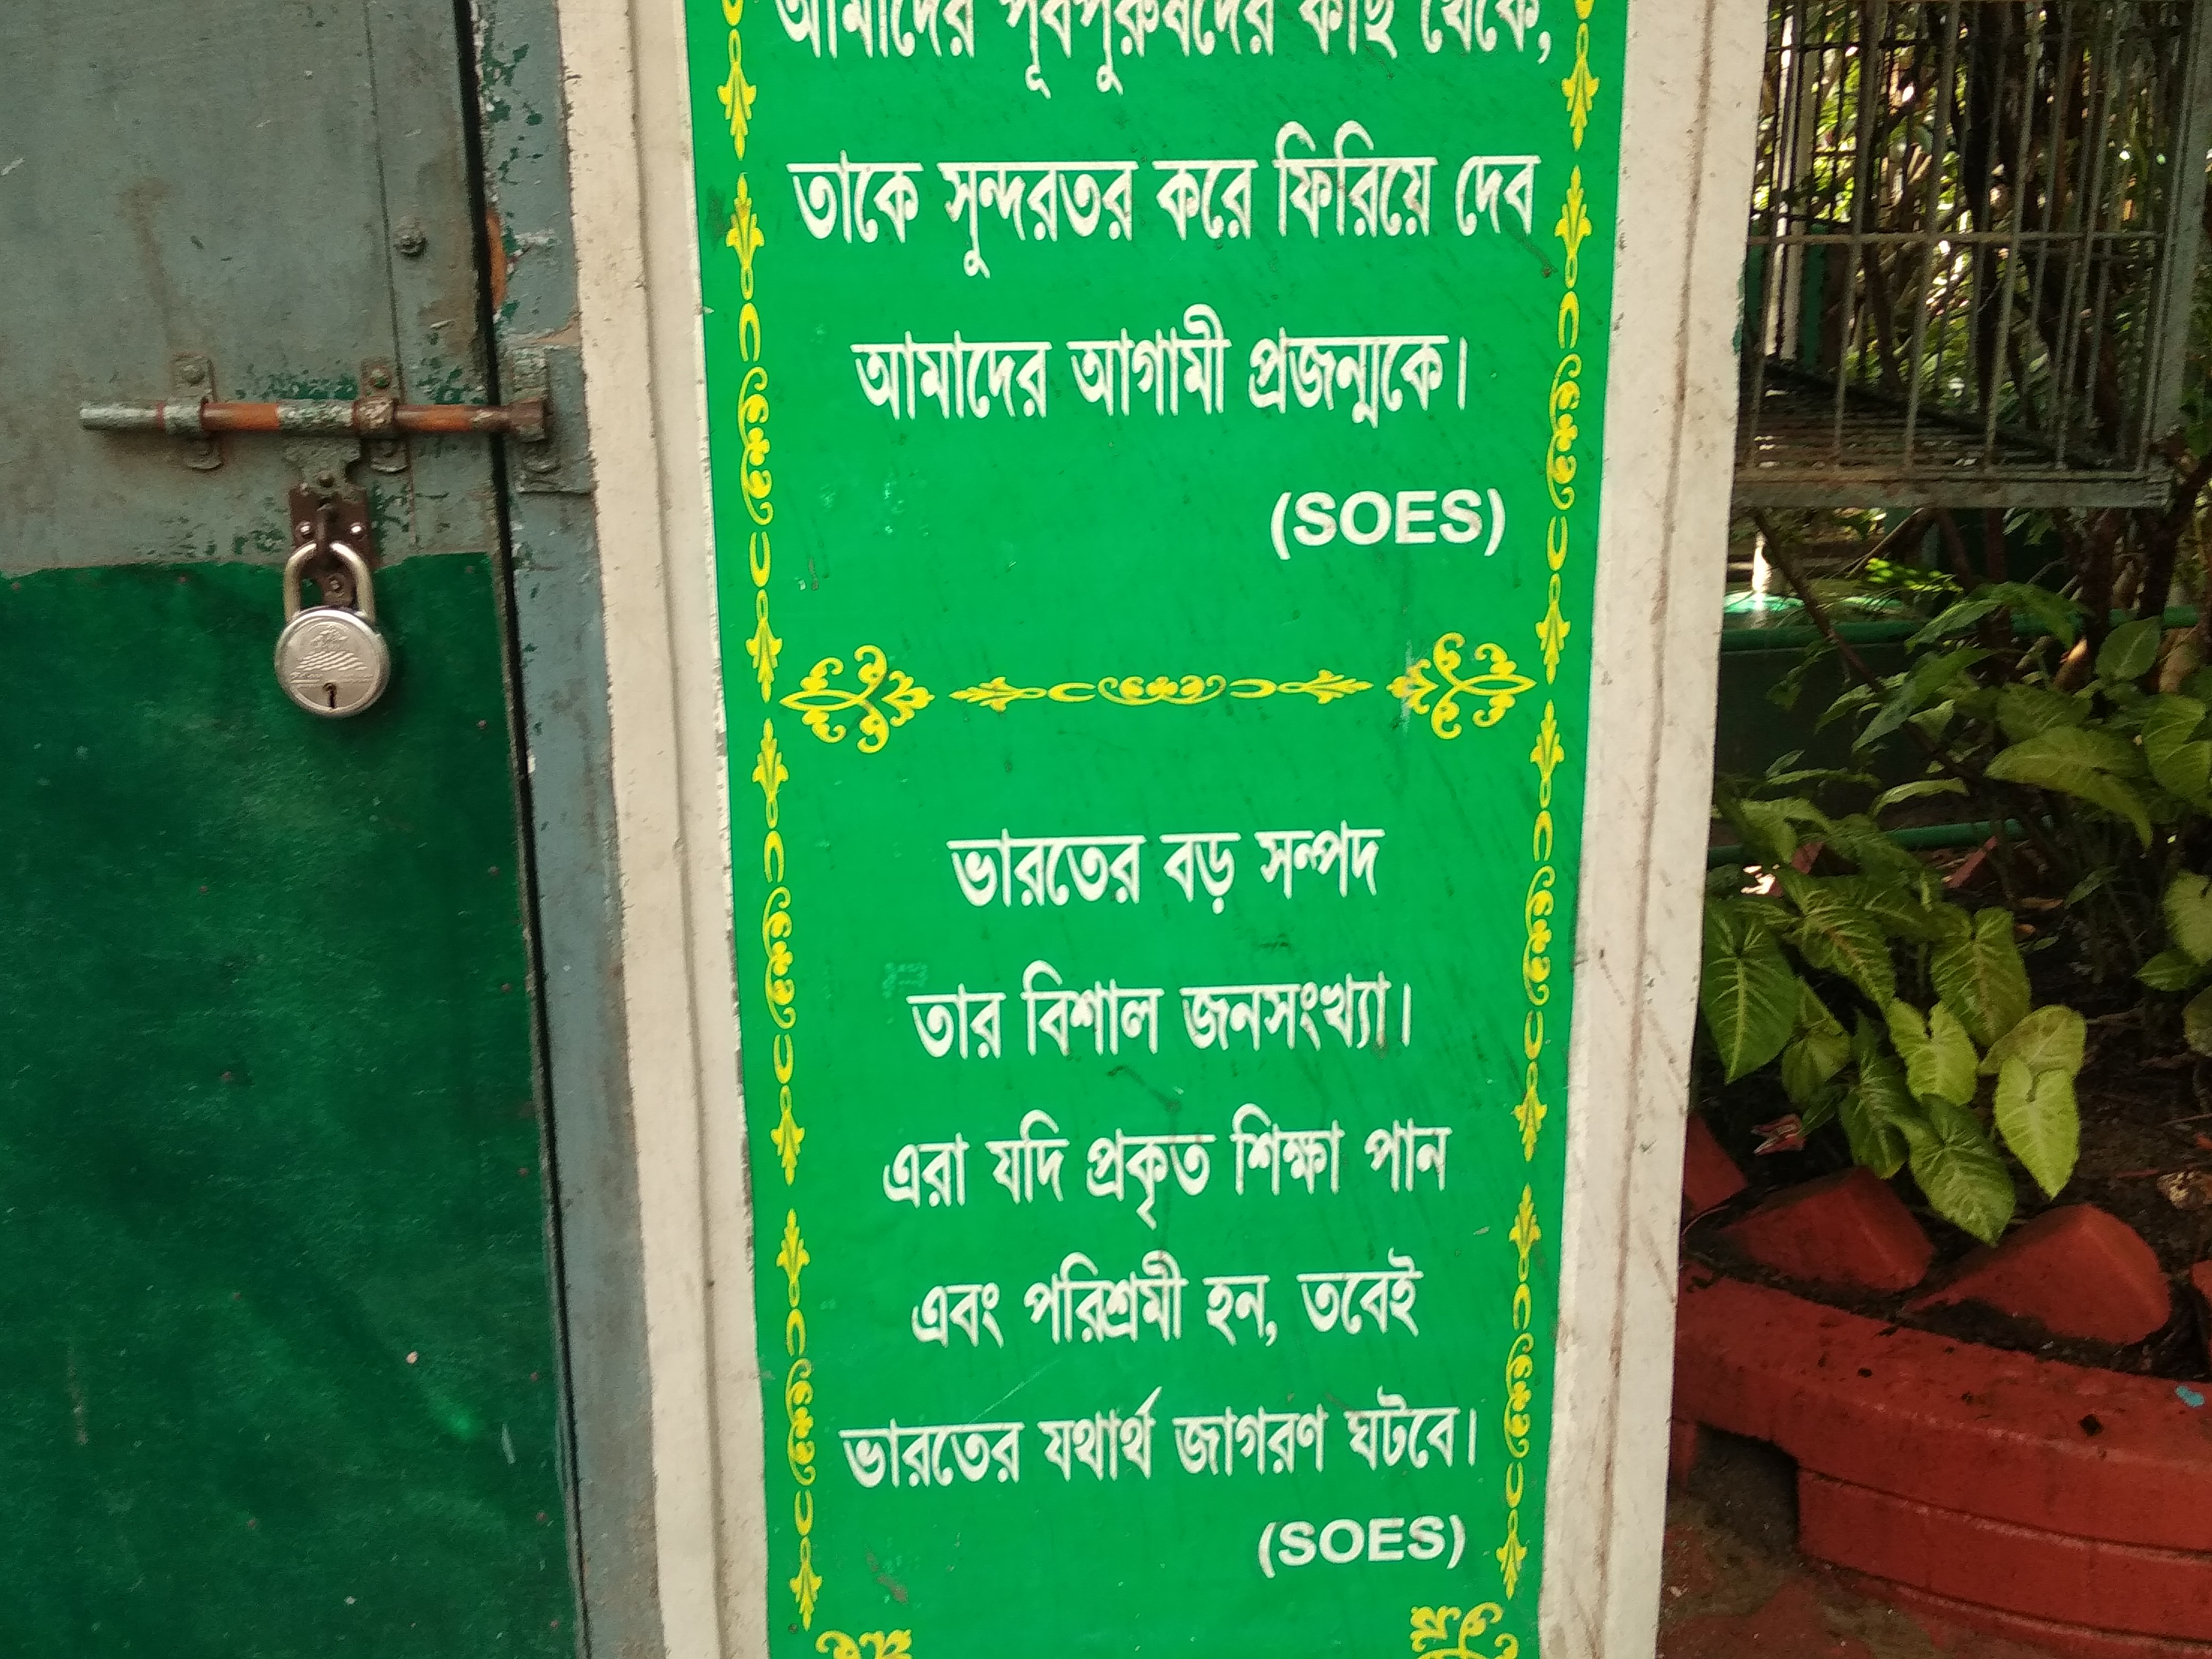 আমাদের পূর্বপুরুষদের কাছ থেকে,
তাকে সুন্দরতর করে ফিরিয়ে দেব
আমাদের আগামী প্রজন্মকে।
(SOES)
ভারতের বড় সম্পদ
তার বিশাল জনসংখ্যা।
এরা যদি প্রকৃত শিক্ষা পান
এবং পরিশ্রমী হন, তবেই
ভারতের যথার্থ জাগরণ ঘটবে।
(SOES)